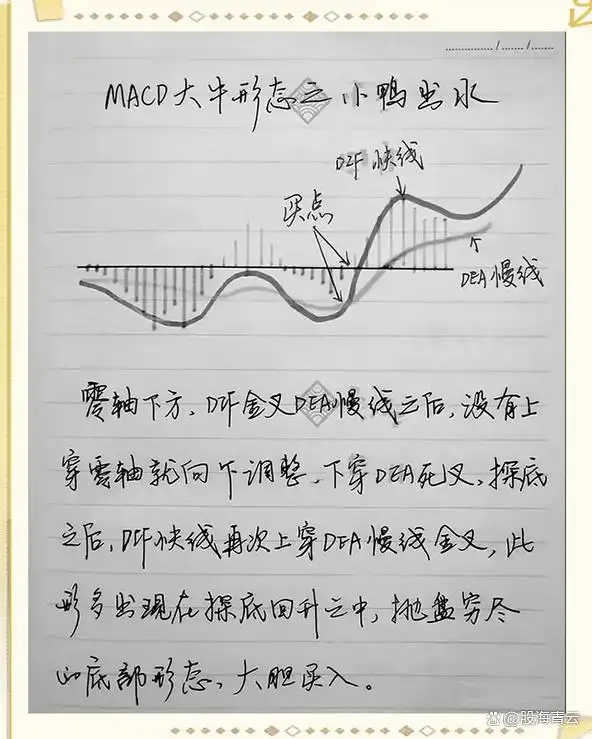 ............... / ....... / .......
MACD大牛形态之小鸭出水
DIF快线
买点
DEA慢线
零轴下方,DIF金叉DEA慢线之后,没有上
穿零轴就向下调整,下穿DEA死叉,探底
之后,DIF快线再次上穿DEA慢线金叉,此
形多出现在探底回升之中,抛盘穷尽
的底部形态,大胆买入。
@股海青云